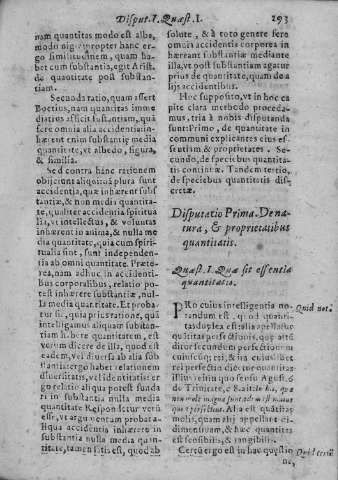 Disput. I. Quæst. I. 293
nam quantitas modo est alba,
modo nigra; propter hanc er-
go similitudinem, quam ha-
bet cum substantia, egit Arist.
de quantitate post substan-
tiam.
Secunda ratio, quam assert
Boetius, nam quantitas imme
diatius afficit substantiam, quā
fere omnia alia accidentia: in-
hærent enim substantiæ media
quantitate, vt albedo, figura,
& similia.
Sed contra hanc rationem
obijciunt aliqui: nā plura sunt
accidentia, quæ inhærent subs
tantiæ, & non media quantita-
te, qualiter accidentia spiritua
lia, vt intellectus, & voluntas
inhærent in anima, & nulla me
dia quantitate, quia cum spiri-
tualia sint, sunt independen-
tia ab omni quantitate. Præte-
rea, nam adhuc in accidenti-
bus corporalibus, relatio po-
test inhærere substantiæ, nul-
la media quantitate. Et proba
tur
quia prius ratione, quā
intelligamus aliquam substan-
tiam habere quantitatem, est
verum dicere de illa, quod est
eadem, vel diuersa ab alia sub
stantia: ergo habet relationem
diuersitatis, vel identitatis: er
go relatio aliqua potest funda
ri in substantia nulla media
quantitate. Respondetur verū
esse, vt argumentum probat,
aliqua accidentia inhærere in
substantia nulla media
quantitate, tamen satis est, quod ab
solute, & à toto genere fere
omnia accidentia corporea in
hæreant substantiæ mediante
illa, vt post substantiam agatur
prius de quantitate, quam de a
lijs accidentibus.
Hoc supposito, vt in hoc ca
pite clara methodo proceda-
mus, tria à nobis disputanda
sunt: Primo, de quantitate in
communi explicantes eius es-
sentiam, & proprietates. Se-
cundo, de speciebus quantita-
tis continuæ. Tandem tertio,
de speciebus quantitatis dis-
cretæ.
Disputatio Prima. De na-
tura, & proprietatibus
quantitatis.
Quæst. I. Quæ sit essentia
quantitatis.
PRo cuius intelligentia no-
tandum est, quod quanti-
tas duplex est: alia appellatur
dicere secundum perfectionem
cuiuscumque rei, & in
rei perfectione dicitur quantitas
in quo sensu August. 6
de Trinitate, c. 8. ait: In his, quæ
non mole magna sunt
Alia est quātitas
molis, quam alij appellant di-
mensiuam, & hæc quantitas
est sensibilis, & tangibilis.
Certū ergo est in hac quæstio
ne,
Quid not.